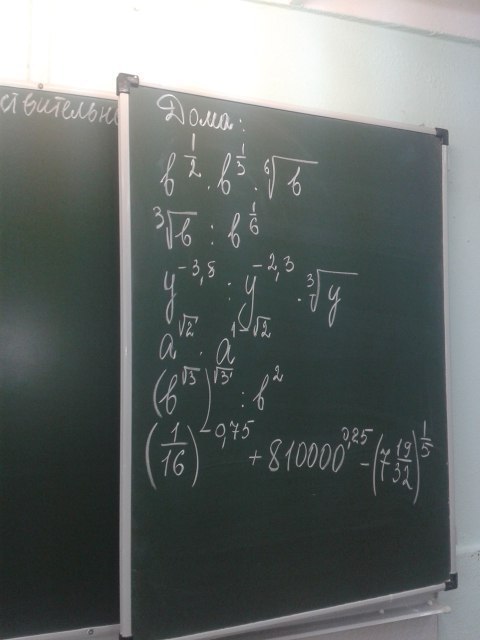 ствительн
Дома:
b^{1/2} · b^{1/3} · ⁶√b
³√b : b^{1/6}
y^{-3,8} : y^{-2,3} · ³√y
a^{√2} · a^{1-√2}
(b^{√3})^{√3} : b^2
(1/16)^{-0,75} + 810000^{0,25} - (7 19/32)^{1/5}